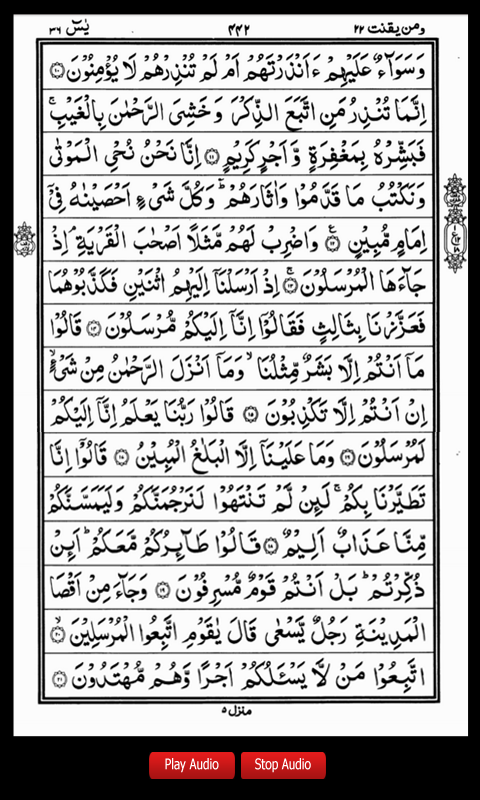 ومن يقنت ٢٢ ٤٤٢ يٰسٓ ٣٦
وَسَوَآءٌ عَلَيْهِمْ ءَاَنْذَرْتَهُمْ اَمْ لَمْ تُنْذِرْهُمْ لَا يُؤْمِنُوْنَ ﴿۱۰﴾
اِنَّمَا تُنْذِرُ مَنِ اتَّبَعَ الذِّكْرَ وَخَشِیَ الرَّحْمٰنَ بِالْغَيْبِ ۚ
فَبَشِّرْهُ بِمَغْفِرَةٍ وَّاَجْرٍ كَرِيْمٍ ﴿۱۱﴾ اِنَّا نَحْنُ نُحْیِ الْمَوْتٰی
وَنَكْتُبُ مَا قَدَّمُوْا وَاٰثَارَهُمْ ؕ وَكُلَّ شَیْءٍ اَحْصَيْنٰهُ فِیْۤ
اِمَامٍ مُّبِيْنٍ ﴿۱۲﴾ وَاضْرِبْ لَهُمْ مَّثَلًا اَصْحٰبَ الْقَرْيَةِ ۘ اِذْ
جَآءَهَا الْمُرْسَلُوْنَ ﴿۱۳﴾ اِذْ اَرْسَلْنَاۤ اِلَيْهِمُ اثْنَيْنِ فَكَذَّبُوْهُمَا
فَعَزَّزْنَا بِثَالِثٍ فَقَالُوْۤا اِنَّاۤ اِلَيْكُمْ مُّرْسَلُوْنَ ﴿۱۴﴾ قَالُوْا
مَاۤ اَنْتُمْ اِلَّا بَشَرٌ مِّثْلُنَا ۙ وَمَاۤ اَنْزَلَ الرَّحْمٰنُ مِنْ شَیْءٍ ۙ
اِنْ اَنْتُمْ اِلَّا تَكْذِبُوْنَ ﴿۱۵﴾ قَالُوْا رَبُّنَا يَعْلَمُ اِنَّاۤ اِلَيْكُمْ
لَمُرْسَلُوْنَ ﴿۱۶﴾ وَمَا عَلَيْنَاۤ اِلَّا الْبَلٰغُ الْمُبِيْنُ ﴿۱۷﴾ قَالُوْۤا اِنَّا
تَطَيَّرْنَا بِكُمْ ۚ لَئِنْ لَّمْ تَنْتَهُوْا لَنَرْجُمَنَّكُمْ وَلَيَمَسَّنَّكُمْ
مِّنَّا عَذَابٌ اَلِيْمٌ ﴿۱۸﴾ قَالُوْا طَآئِرُكُمْ مَّعَكُمْ ؕ اَئِنْ
ذُكِّرْتُمْ ؕ بَلْ اَنْتُمْ قَوْمٌ مُّسْرِفُوْنَ ﴿۱۹﴾ وَجَآءَ مِنْ اَقْصَا
الْمَدِيْنَةِ رَجُلٌ يَّسْعٰی قَالَ يٰقَوْمِ اتَّبِعُوا الْمُرْسَلِيْنَ ﴿۲۰﴾ ۙ
اتَّبِعُوْا مَنْ لَّا يَسْئَلُكُمْ اَجْرًا وَّهُمْ مُّهْتَدُوْنَ ﴿۲۱﴾
منزل ٥
Play Audio Stop Audio